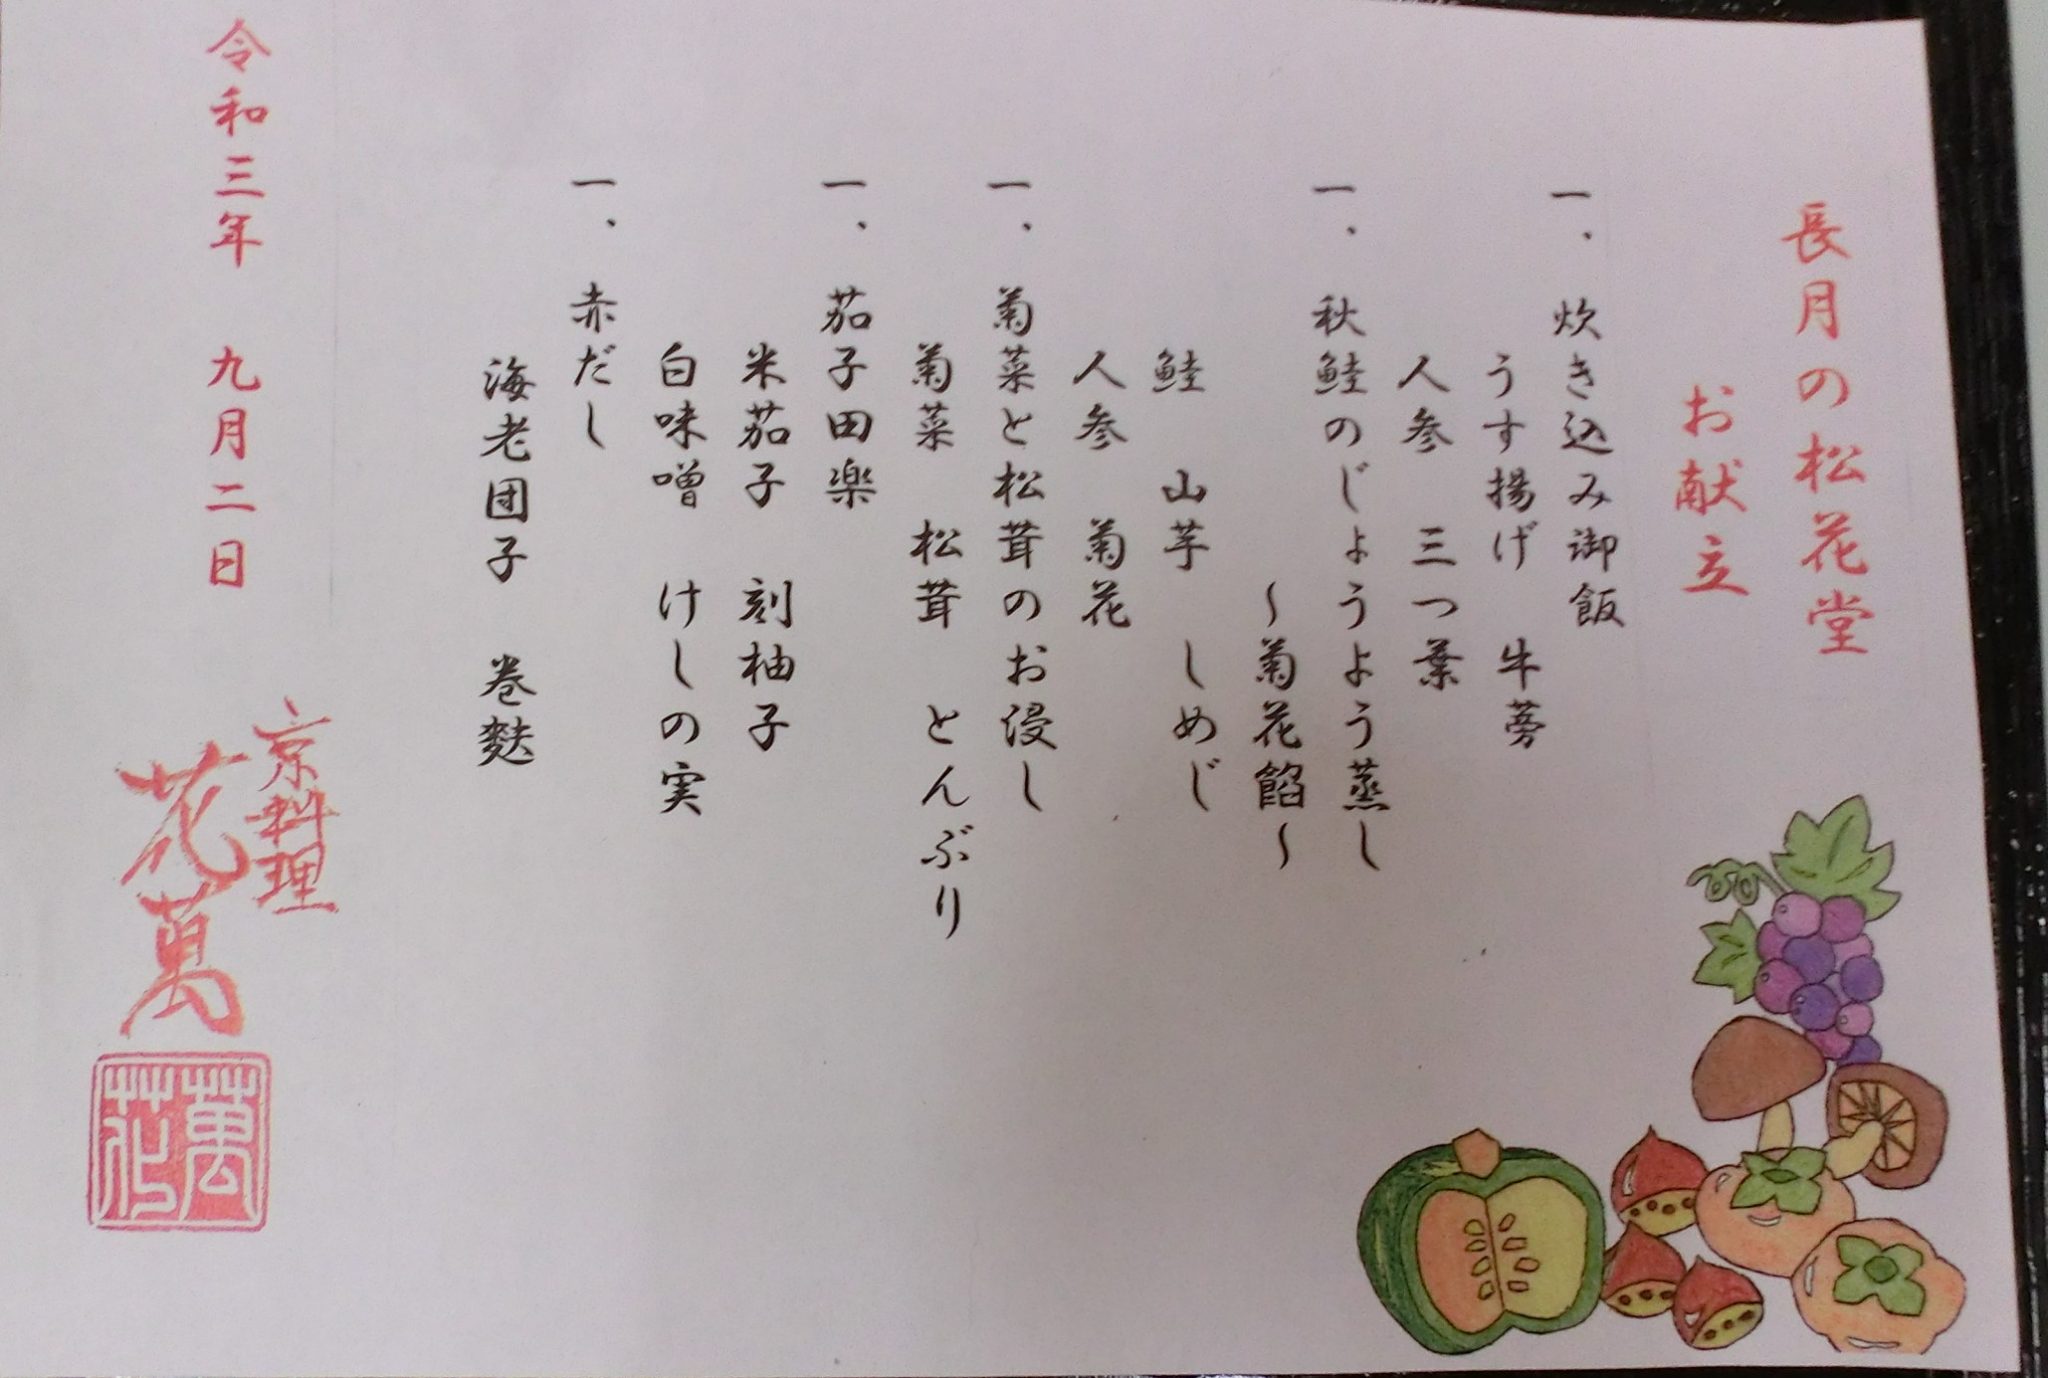 長月の松花堂
お献立
一、炊き込み御飯
うす揚げ 牛蒡
人参 三つ葉
一、秋鮭のじょうよう蒸し
～菊花餡～
鮭 山芋 しめじ
人参 菊花
一、菊菜と松茸のお浸し
菊菜 松茸 とんぶり
一、茄子田楽
米茄子 刻柚子
白味噌 けしの実
一、赤だし
海老団子 巻麩
令和三年 九月二日
京料理
花萬
萬花